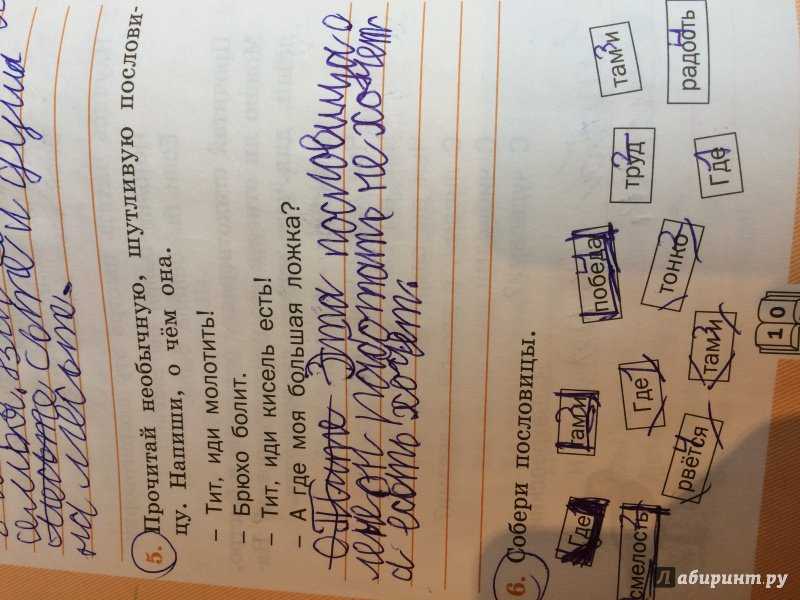 на месте.
5. Прочитай необычную, шутливую послови-
цу. Напиши, о чём она.
– Тит, иди молотить!
– Брюхо болит.
– Тит, иди кисель есть!
– А где моя большая ложка?
Эта пословица о
работать не хочет
а есть хочет.
6. Собери пословицы.
Где там и победа труд там и
смелость Где тонко радость
рвётся там и Где
10
Лабиринт.ру